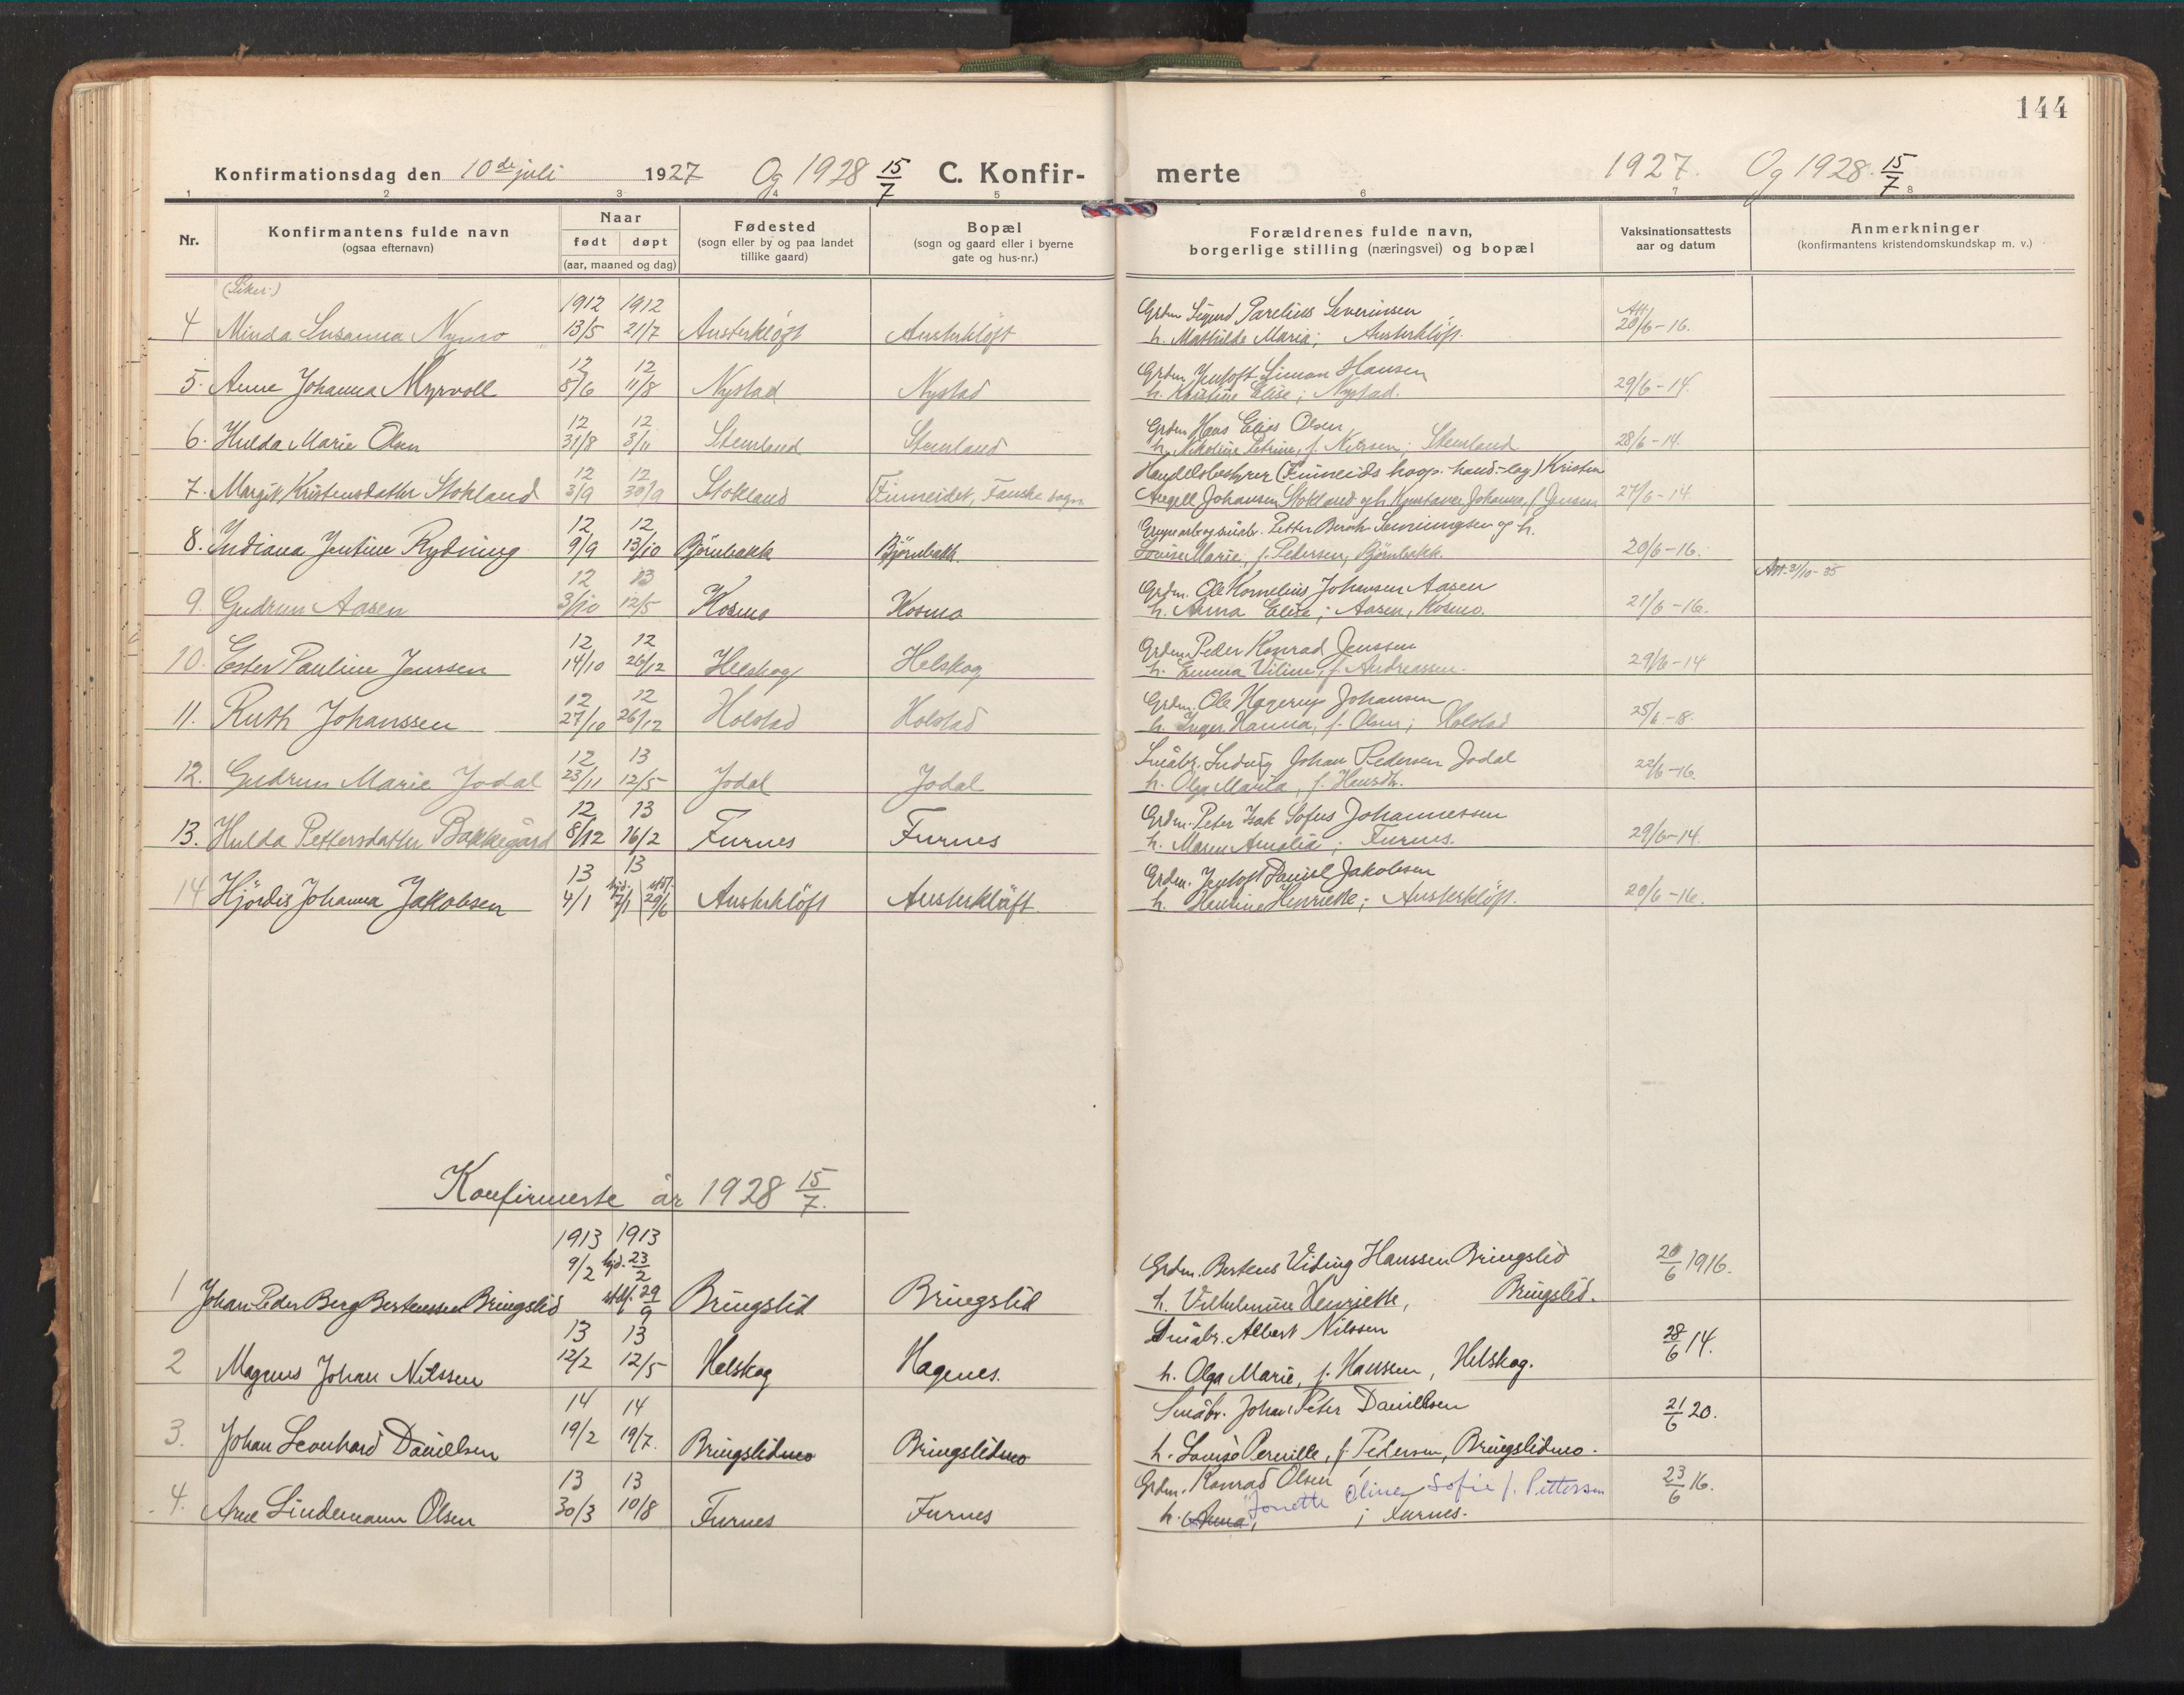 144
Konfirmationsdag den 10de juli 1927 Og 1928 15/7 C. Konfir-
merte 1927. Og 1928. 15/7
1 2 3 4 5 6 7 8
Nr. Konfirmantens fulde navn (ogsaa efternavn) Naar født døpt (aar, maaned og dag) Fødested (sogn eller by og paa landet tillike gaard) Bopæl (sogn og gaard eller i byerne gate og hus-nr.) Forældrenes fulde navn, borgerlige stilling (næringsvei) og bopæl Vaksinationsattests aar og datum Anmerkninger (konfirmantens kristendomskundskap m. v.)
(Piker:)
1912 1912 Grdm. Sigurd Parelius Severinsen Att.
4 Minda Susanna Nymo 13/5 21/7 Austerkløft Austerkløft h. Mathilde Maria; Austerkløft. 20/6-16.
12 12 Grdm. Jentoft Simon Hansen
5. Anne Johanna Myrvoll 8/6 11/8 Nystad Nystad h. Kristine Elise; Nystad. 29/6-14.
12 12 Grdm. Hans Elias Olsen
6. Hulda Marie Olsen 31/8 3/11 Stemland Stemland h. Nikoline Petrine, f. Nilssen; Stemland 28/6-14.
12 12 Handelsbestyrer (Finneids koop. hand.-lag) Kristen
7. Margit Kristensdatter Stokland 3/9 30/9 Stokland Finneidet, Fauske sogn Angell Johansen Stokland og h. Gustava Johanna, f. Jensen 27/6-14.
12 12 Gruvearb. og småbr. Petter Beroth Henningsen og h.
8. Indiana Jentine Rydning 9/9 13/10 Bjørnbakk Bjørnbakk. Lovise Marie, f. Pedersen, Bjørnbakk. 20/6-16.
Att. 31/10-35
12 13 Grdm. Ole Kornelius Johansen Aasen
9. Gudrun Aasen 3/10 12/5 Kosmo Kosmo h. Anna Elise; Aasen, Kosmo. 21/6-16.
12 12 Grdm. Peder Konrad Jenssen
10. Ester Pauline Jenssen 14/10 26/12 Helskog Helskog h. Emma Viline, f. Andreassen. 29/6-14
12 12 Grdm. Ole Hagerup Johansen
11. Ruth Johanssen 27/10 26/12 Holstad Holstad h. Inger Hanna, f. Olsen; Holstad 25/6-8.
12 13 Småbr. Ludvig Johan Pedersen Jodal
12. Gudrun Marie Jodal 23/11 12/5 Jodal Jodal h. Olga Marila, f. Hansdtr. 22/6-16.
12 13 Grdm. Peter Isak Sofus Johannessen
13. Hulda Pettersdatter Bakkegård 8/12 16/2 Furnes Furnes h. Maren Amalia; Furnes. 29/6-14.
13 13 Grdm. Jentoft Daniel Jakobsen
14 Hjördis Johanna Jakobsen 4/1 hjd. 7/1 stdf. 29/6 Austerkløft Austerkløft. h. Hentine Henriette; Austerkløft. 20/6-16.
Konfirmerte år 1928 15/7.
1913 1913
9/2 hjd. 23/2 Grdm. Berteus Viding Hanssen Bringslid 20/6 1916.
1 Johan Peder Berg Berteussen Bringslid stdf. 29/9 Bringslid Bringslid h. Vilhelmine Henriette, Bringslid.
13 13 Småbr. Albert Nilssen
2 Magnus Johan Nilssen 12/2 12/5 Helskog Hagenes. h. Olga Marie, f. Hanssen, Helskog. 28/6 14.
14 14 Småbr. Johan Peter Daniellsen
3. Johan Leonhard Daniellsen 19/2 19/7. Bringslidmo Bringslidmo h. Lovise Pernille, f. Pedersen, Bringslidmo. 21/6 20.
13 13 Grdm. Konrad Olsen
4. Arne Lindemann Olsen 30/3 10/8 Furnes Furnes h. Anna, Jonette Oline Sofie f. Pettersen; Furnes. 23/6 16.